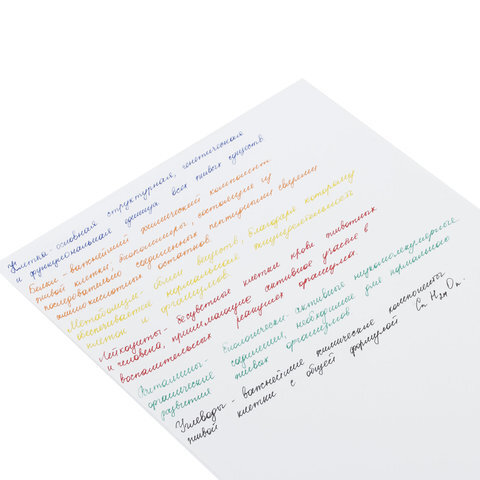 Клетка - основная структурная, генетическая
и функциональная единица всех живых существ
Белки - важнейший химический компонент
живой клетки, биополимеры, состоящие из
последовательно соединенных пептидными связями
аминокислотных остатков.
Метаболизм - обмен веществ, благодаря которому
обеспечивается нормальная жизнедеятельность
клеток и организмов.
Лейкоциты - бесцветные клетки крови животных
и человека, принимающие активное участие в
воспалительных реакциях организма.
Витамины - биологически активные низкомолекулярные
органические соединения, необходимые для нормального
развития живых организмов.
Углеводы - важнейшие химические компоненты
живой клетки с общей формулой Cn H2n On.